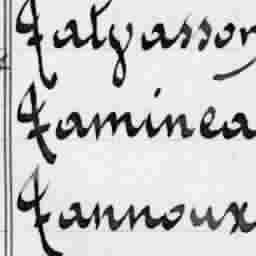 Jalyasson
Jaminea
Jannoux